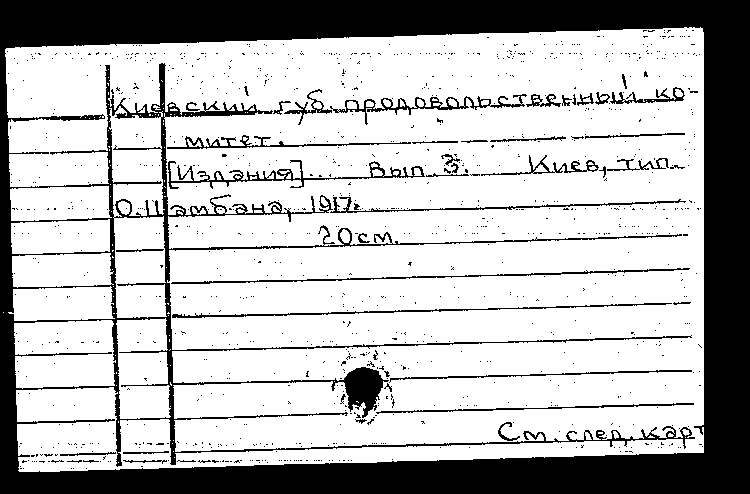 Киевский губ. продовольственный ко-
митет.
[Издания]... Вып. 3. Киев, тип.
1917.
20 см.
См. след. карт